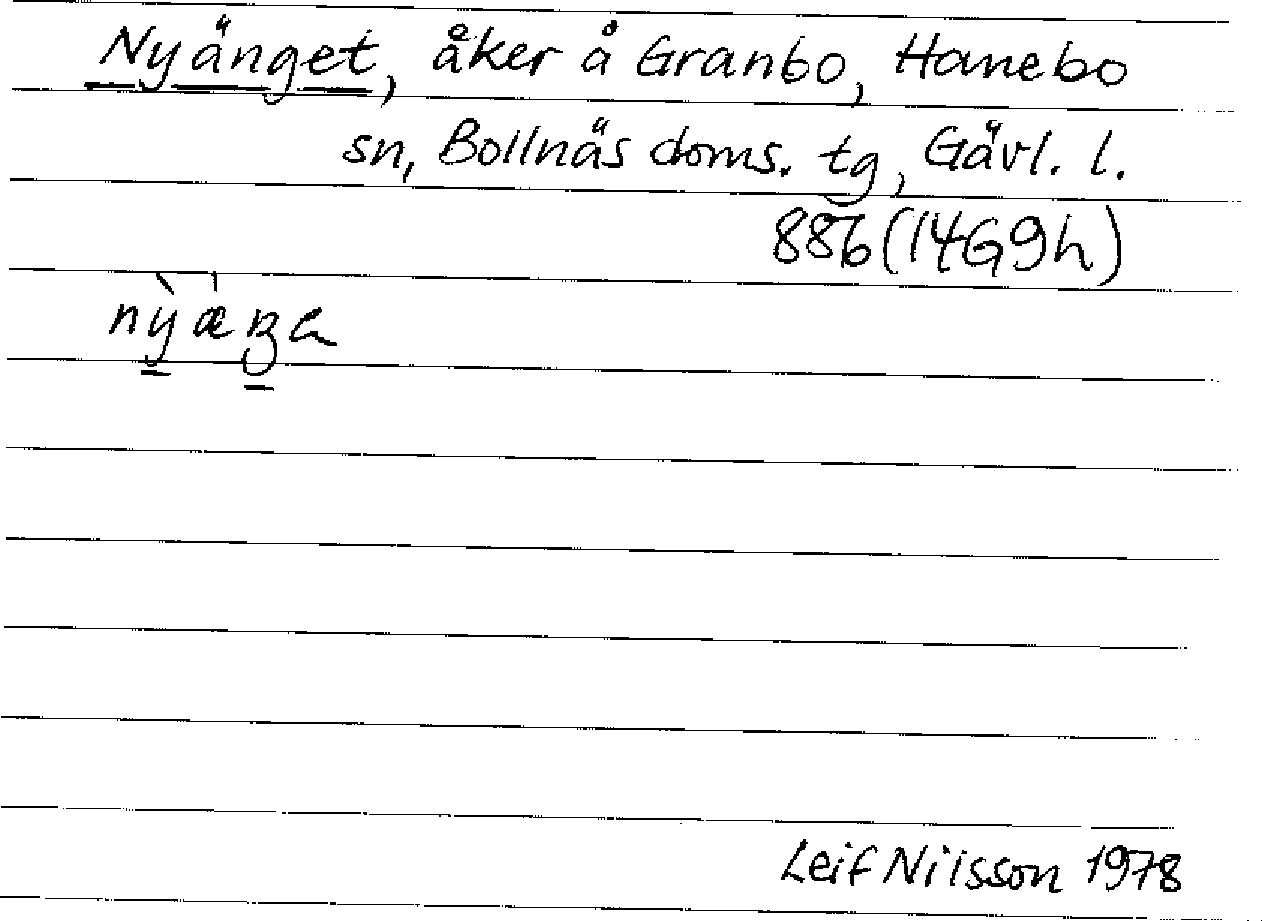 Nyänget, åker å Granbo, Hanebo
sn, Bollnäs doms. tg, Gävl. l.
886 (14G9h)
Leif Nilsson 1978